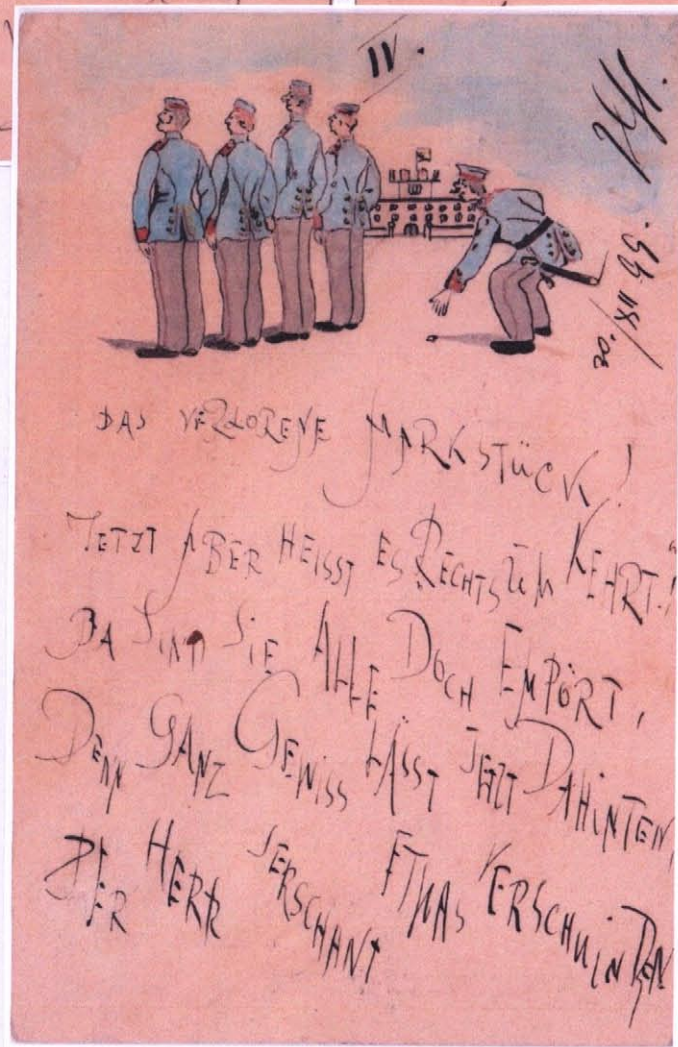 IV.
20./XII.99.
DAS VERLORENE MARKSTÜCK!
JETZT ABER HEISST ES RECHTS UM KEHRT!"
DA SIND SIE ALLE DOCH EMPÖRT,
DENN GANZ GEWISS LÄSST JETZT DAHINTEN,
DER HERR SERSCHANT ETWAS VERSCHWINDEN